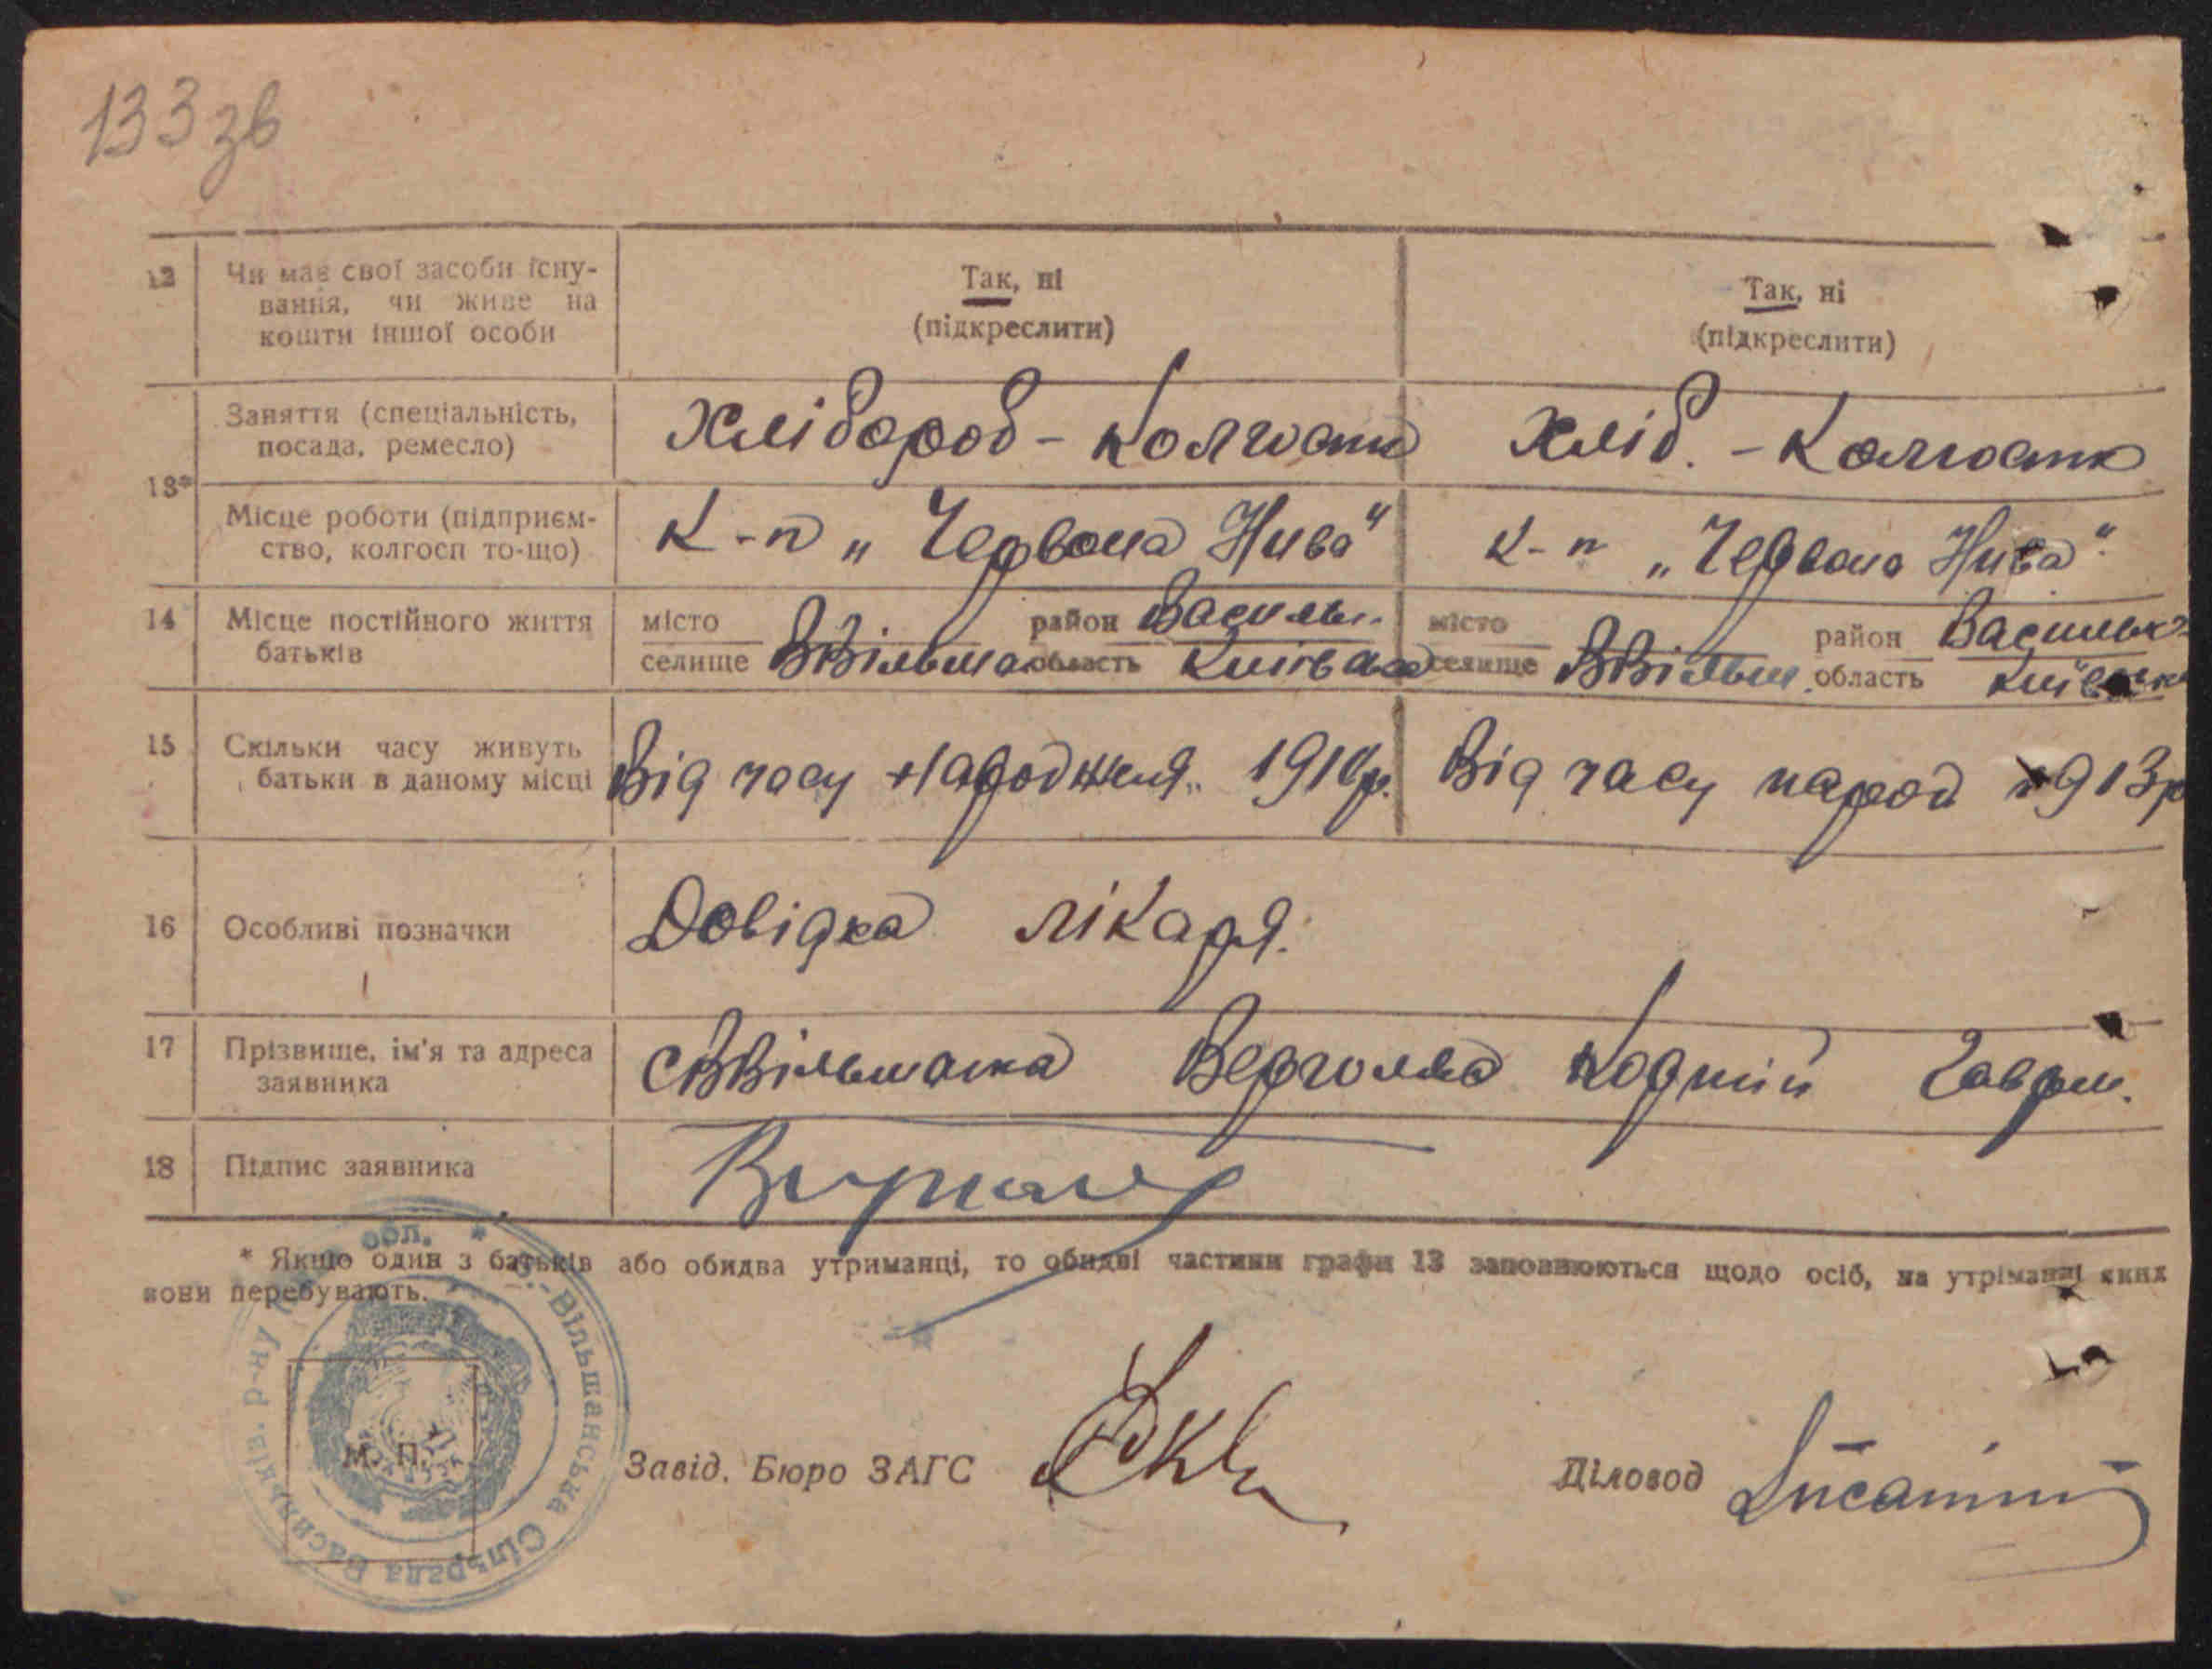 133 зв
12 Чи має свої засоби існу-
вання, чи живе на
кошти іншої особи
Так, ні
(підкреслити)
Так, ні
(підкреслити)
13*
Заняття (спеціальність,
посада, ремесло)
Хлібороб - Колгосник
Хліб. - Колгосник
Місце роботи (підприєм-
ство, колгосп то-що)
К-п „Червона Нива"
К-п „Червона Нива"
14 Місце постійного життя
батьків
місто
селище ВВільшан.
район Васильк.
область Київська
місто
селище ВВільш.
район Васильк.
область Київська
15 Скільки часу живуть
батьки в даному місці
Від часу народження 1910р.
Від часу народ 1913р
16 Особливі позначки
Довідка лікаря.
17 Прізвище, ім'я та адреса
заявника
с ВВільшанка Вергола Кодній Гаври.
18 Підпис заявника
* Якщо один з батьків або обидва утриманці, то обидві частини графи 13 заповнюються щодо осіб, на утріманні яких
вони перебувають.
М. П.
Вільшанська Сільрада Васильків. р-ну обл.
Завід. Бюро ЗАГС
Діловод